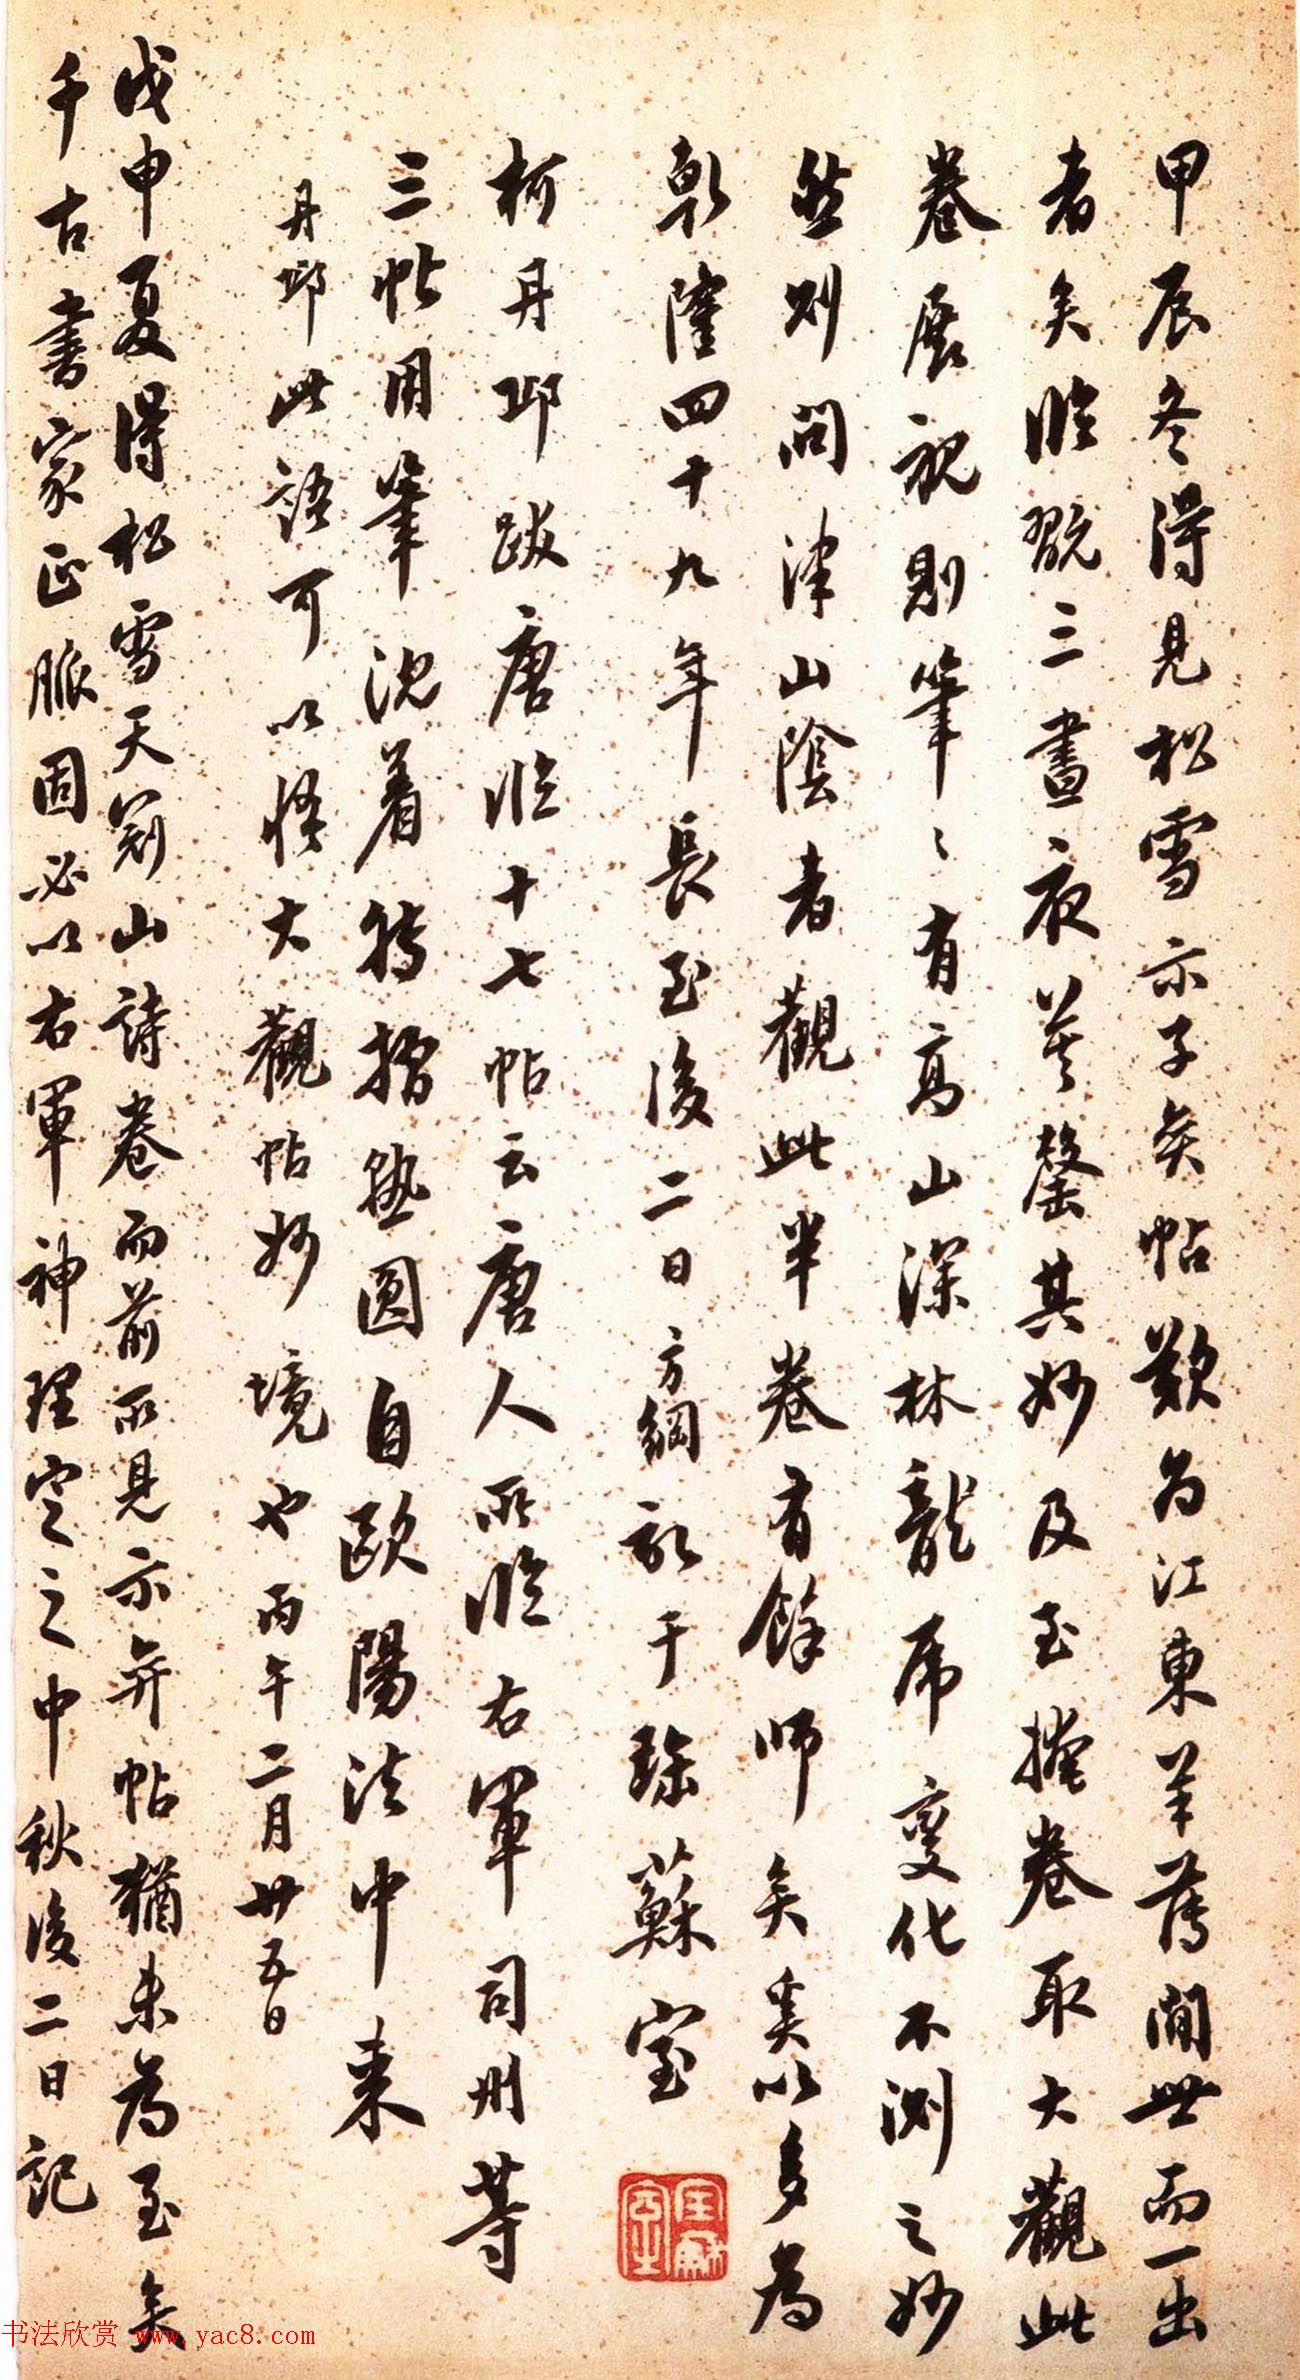 甲辰冬得見松雪示子奕帖歎為江東羊薄閒世而一出
者矣臨翫三晝夜莫罄其妙及至掩卷取大觀此
卷展視則筆〻有高山深林龍虎變化不測之妙
然則問津山陰者觀此半卷有餘師矣奚以多為
乾隆四十九年長至後二日方綱記于蘇室
柯丹邱跋唐臨十七帖云唐人所臨右軍司州等
三帖用筆沈着轉摺熟圓自歐陽法中来
丹邱此語可以悟大觀帖妙境也丙午二月廿五日
戊申夏得松雪天冠山詩卷而前所見示弈帖猶未為至矣
千古書家正脈固必以右軍神理定之中秋後二日記
书法欣赏 www.yac8.com